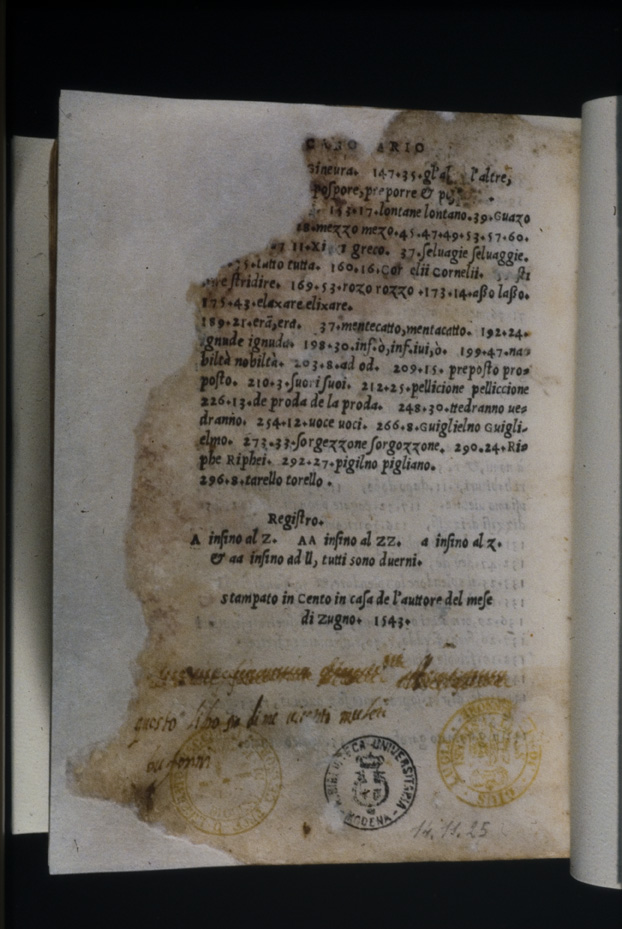 ARIO
147·35·gl'al l'altre,
pospore, preporre &
153·17·lontane lontano·39·Guazo
mezzo mezo·45·47·49·53·57·60·
greco· 37·seluagie seluaggie·
tutta· 160·16·Cor elii Cornelii·
stridire· 169·53·rozo rozzo ·173·14·aßo laßo·
175·43·elaxare elixare·
189·21·erã, era· 37·mentecatto, mentacatto· 192·24·
ignude ignuda· 198·30·inf·ò, inf·iui, ò· 199·47·na=
biltà nobiltà· 203·8·ad od· 209·15· preposto pro=
posto· 210·3·suori suoi· 212·25·pellicione pelliccione
226·13·de proda de la proda· 248·30·tedranno ue=
dranno· 254·12·uoce uoci· 266·8·Guiglielno Guigli=
elmo· 273·33·sorgezzone sorgozzone· 290·24·Ri=
phe Riphei· 292·27·pigilno pigliano·
296·8·tarello torello ·
Registro·
A insino al Z· AA insino al ZZ· a insino al z·
& aa insino ad ll, tutti sono duerni·
Stampato in Cento in casa de l'auttore del mese
di Zugno· 1543·
questo libo
R. BIBLIOTECA UNIVERSITARIA
MODENA
14.11.25